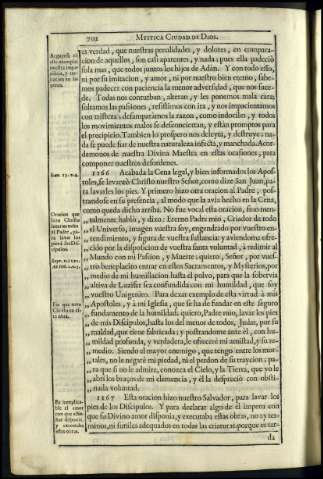 702
MYSTICA CIUDAD DE DIOS.
es verdad, que nuestras penalidades, y dolores, en compara-
cion de aquellos, son casi aparentes, y nada; pues ella padeciò
sola mas, que todos juntos los hijos de Adàn. Y con todo esso,
ni por su imitacion, y amor, ni por nuestro bien eterno, sabe-
mos padecer con paciencia la menor adversidad, que nos suce-
de. Todas nos conturban, alteran, y les ponemos mala cara;
soltamos las passiones, resistimos con ira, y nos impacientamos
con tristeza; desamparamos la razon, como indociles, y todos
los movimientos malos se desconciertan, y estàn promptos para
el precipicio. Tambien lo prospero nos deleyta, y destruye; na-
da se puede fiar de nuestra naturaleza infecta, y manchada. Acor-
demonos de nuestra Divina Maestra en estas ocasiones, para
componer nuestros desordenes.
1166 Acabada la Cena legal, y bien informados los Aposto-
les, se levantò Christo nuestro Señor, como dize San Juan, pa-
ra lavarles los pies. Y primero hizo otra oracion al Padre, pos-
trandose en su presencia, al modo que la avia hecho en la Cena,
como queda dicho arriba. No fue vocal esta oracion, sino men-
talmente hablò, y dixo: Eterno Padre mio, Criador de todo
el Universo, imagen vuestra soy, engendrado por vuestro en-
tendimiento, y figura de vuestra substancia; y aviendome ofre-
cido por la disposicion de vuestra santa voluntad, à redimir al
Mundo con mi Passion, y Muerte; quiero, Señor, por vues-
tro beneplacito entrar en estos Sacramentos, y Mysterios, por
medio de mi humillacion hasta el polvo, para que la sobervia
altiva de Luzifer sea confundida con mi humildad, que soy
vuestro Unigenito. Para dexar exemplo de esta virtud à mis
Apostoles, y à mi Iglesia, que se ha de fundar en este seguro
fundamento de la humildad; quiero, Padre mio, lavar los pies
de mis Discipulos, hasta los del menor de todos, Judas, por su
maldad, que tiene fabricada; y postrandome ante èl, con hu-
mildad profunda, y verdadera, le ofrecerè mi amistad, y su re-
medio. Siendo el mayor enemigo, que tengo entre los mor-
tales, no le negarè mi piedad, ni el perdon de su traycion; pa-
ra que si no le admite, conozca el Cielo, y la Tierra, que yo le
abrì los brazos de mi clemencia, y èl la despreciò con obsti-
nada voluntad.
1167 Esta oracion hizo nuestro Salvador, para lavar los
pies de los Discipulos. Y para declarar algo de el impetu con
que su Divino amor disponia, y executaba estas obras, no ay ter-
minos, ni similes adequados en todas las criaturas; porque es tar-
da
Joan. 13. v. 4.
Oracion que
hizo Christo